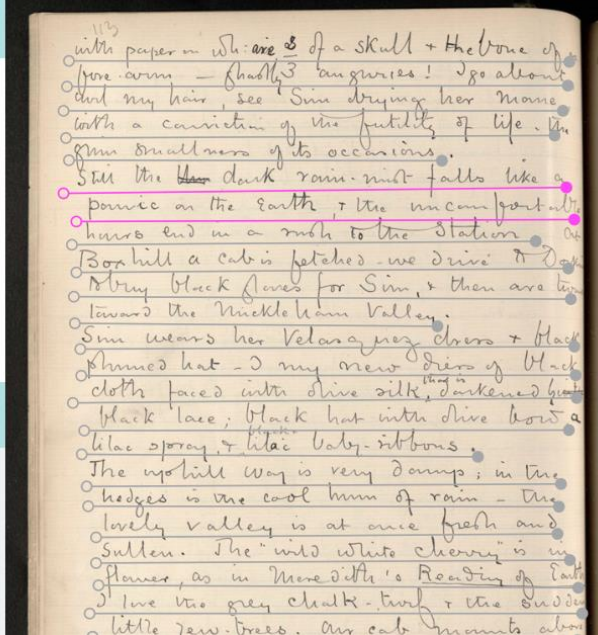 113
with paper on wh: are 3/3 of a skull + the bone of
fore-arm – ghastly auguries! I go about
and my hair, see Sim drying her mane
with a conviction of the futility of life. the
grim smallness of its occasions.
Still the dark rain-mist falls like a
panic on the Earth, + the uncomfortable
hours end in a rush to the Station. At
Boxhill a cab is fetched – we drive to
+ buy black gloves for Sim, + then are
toward the Mickleham Valley.
Sim wears her Velasquez dress + black
plumed hat – I my new dress of black
cloth faced with olive silk, that is darkened
black lace; black hat with olive bow a
lilac spray, + black lilac baby-ribbons.
The uphill way is very damp; in the
hedges is the cool hum of rain – the
lovely valley is at once fresh and
sullen. The "wild white cherry" is in
flower, as in Meredith's Reading of Earth
I love the grey chalk-turf + the sudden
little yew-trees. Our cab mounts above